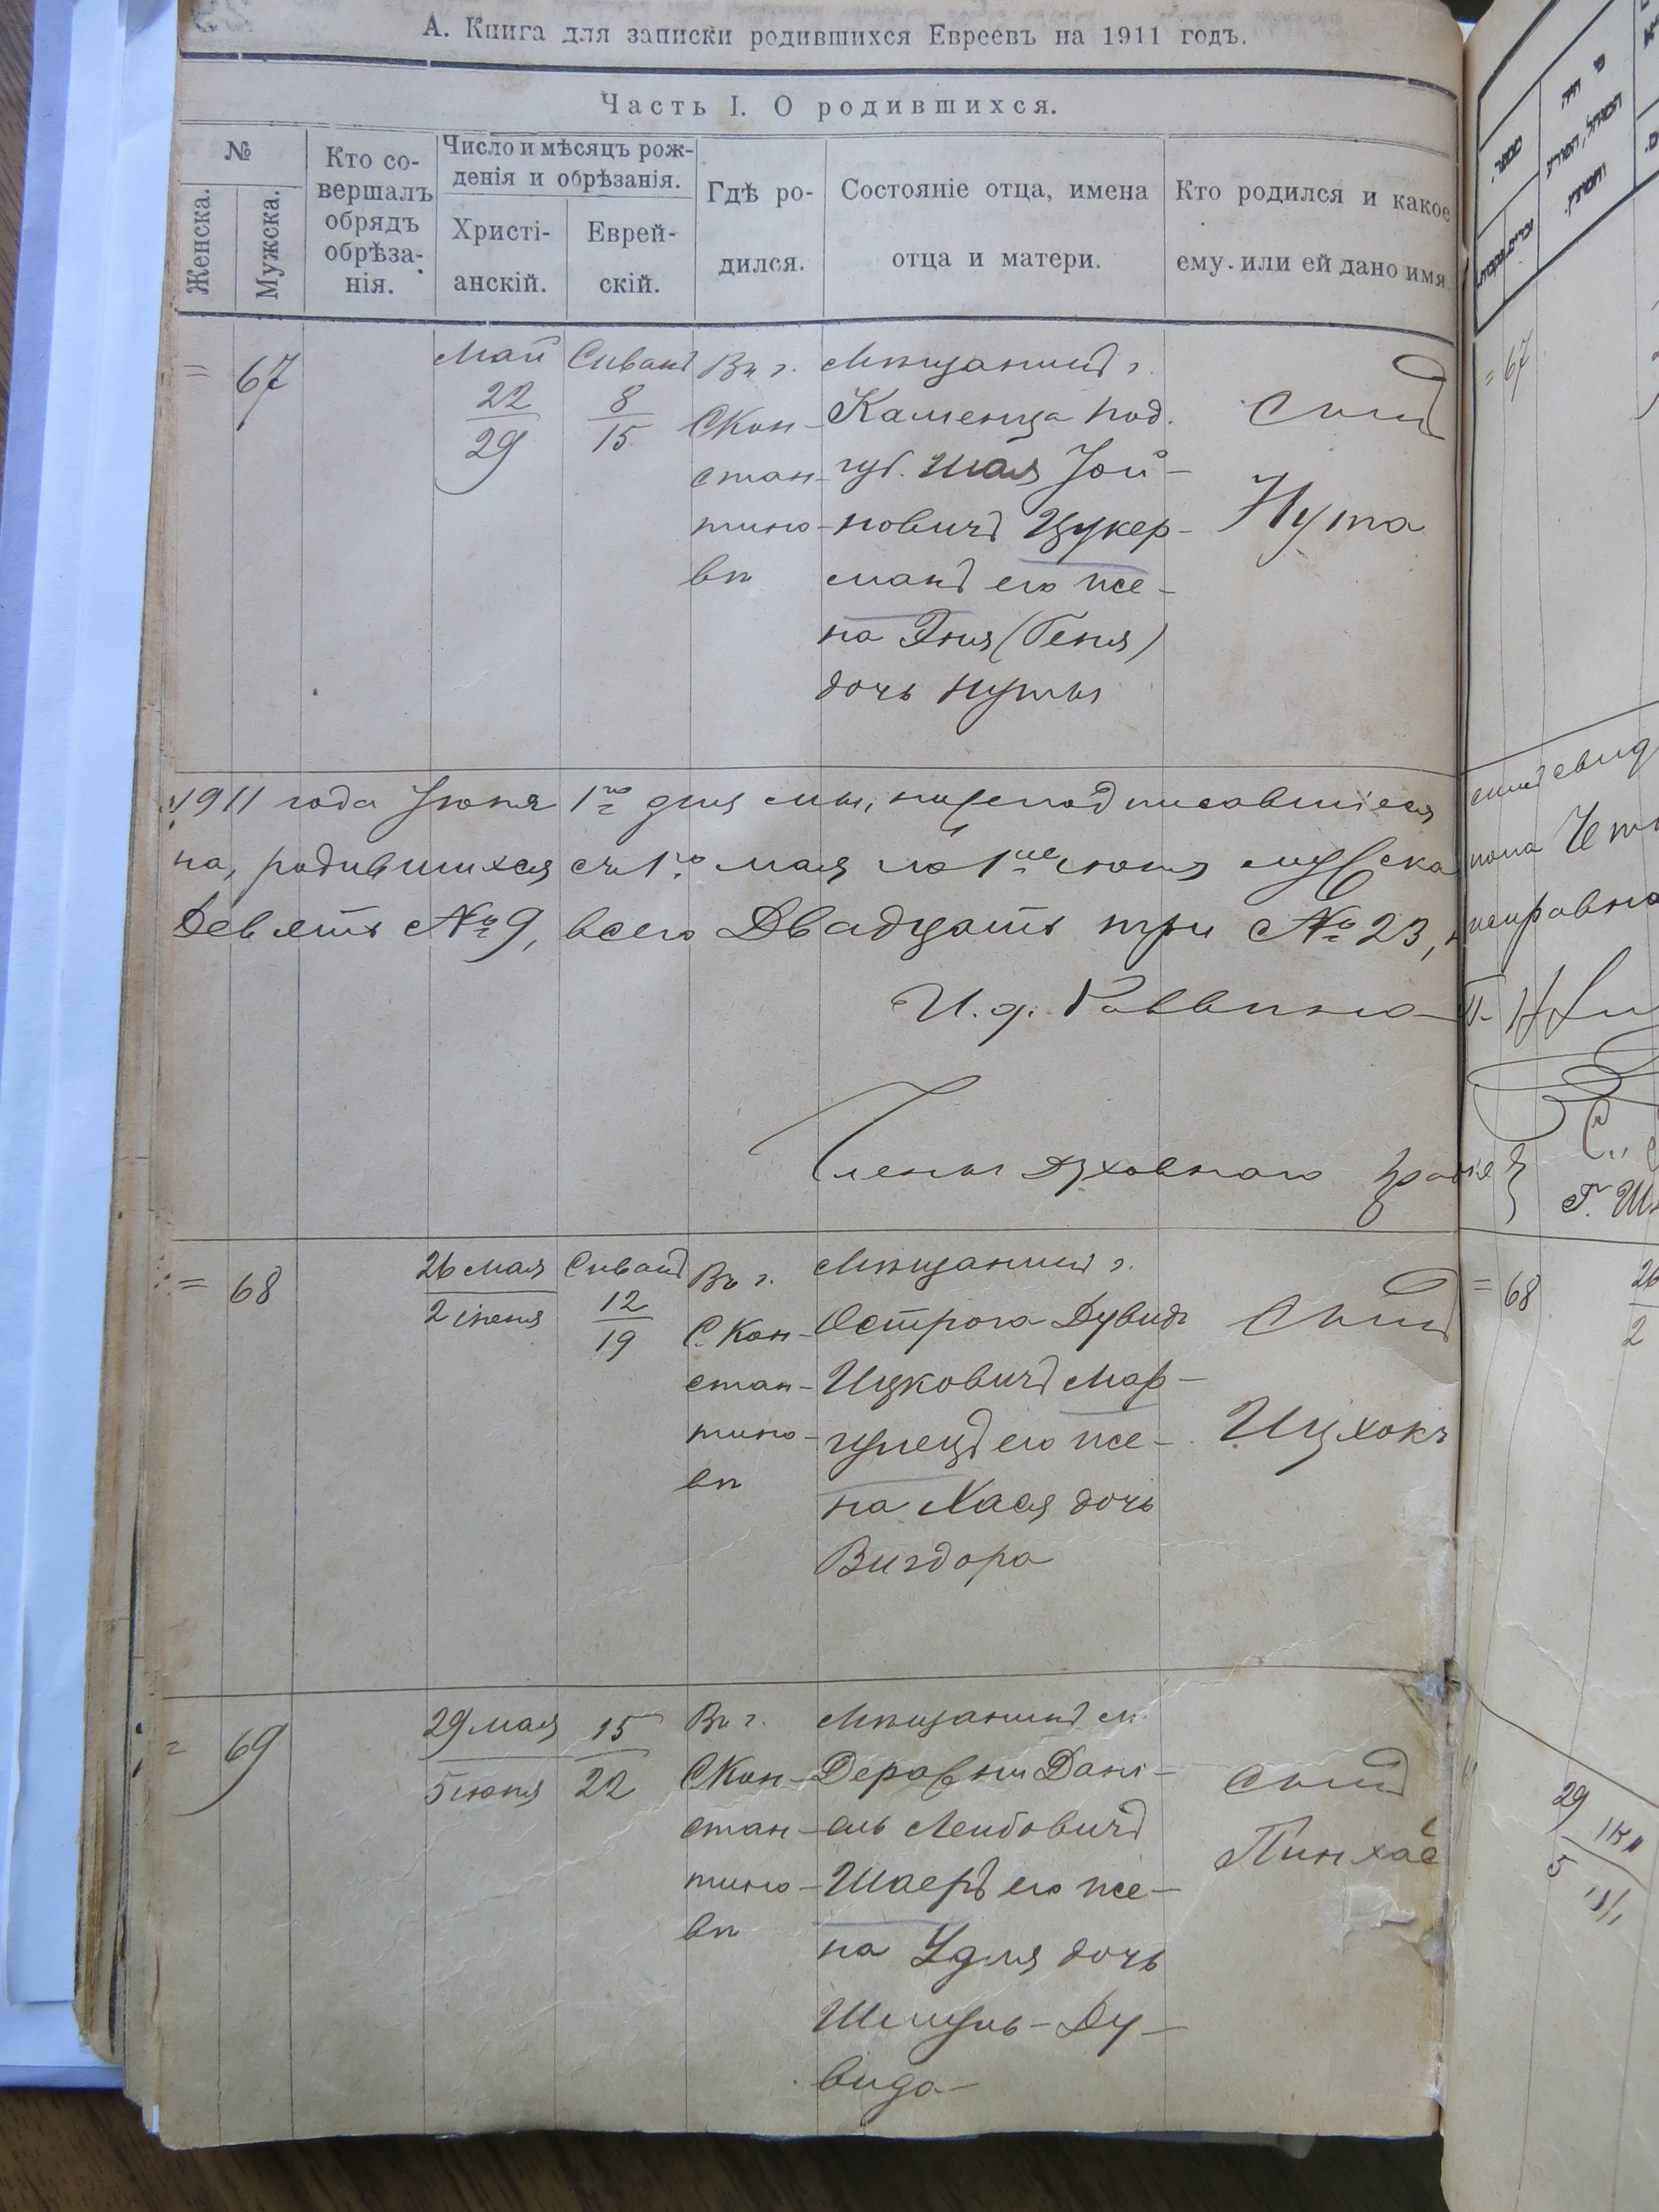 А. Книга для записки родившихся Евреевъ на 1911 годъ.
Часть I. О родившихся.
№
Женска.
Мужска.
Кто со-
вершалъ
обрядъ
обрѣза-
нія.
Число и мѣсяцъ рож-
денія и обрѣзанія.
Христі-
анскій.
Еврей-
скій.
Гдѣ ро-
дился.
Состояніе отца, имена
отца и матери.
Кто родился и какое
ему или ей дано имя.
= 67
Май
22
29
Сиванъ
8
15
Въ г.
СКон-
стан-
тино-
вѣ
Мѣщанинъ г.
Каменца под.
губ. Шая Йой-
новичъ Цукер-
манъ его же-
на Эня (Геня)
дочь Нуты
Сынъ
Нута
1911 года Іюня 1го дня мы, нижеподписавшіеся
на, родившихся съ 1го мая по 1ое іюня мужска
Девять № 9, всего Двадцать три № 23,
И. д. Раввина
Члены Духовнаго Правле
= 68
26 мая
2 іюня
Сиванъ
12
19
Въ г.
С. Кон-
стан-
тино-
вѣ
Мѣщанинъ г.
Острога Дувидъ
Ицковичъ Мар-
гулецъ его же-
на Хася дочь
Вигдора
Сынъ
Ицхокъ
= 69
29 мая
5 іюня
15
22
Въ г.
СКон-
стан-
тино-
вѣ
Мѣщанинъ м.
Деражни Дани-
ель Лейбовичъ
Шаеръ его же-
на Удля дочь
Шмуль-Ду-
вида
Сынъ
Пинхас
= 67
= 68
26
2
29
5